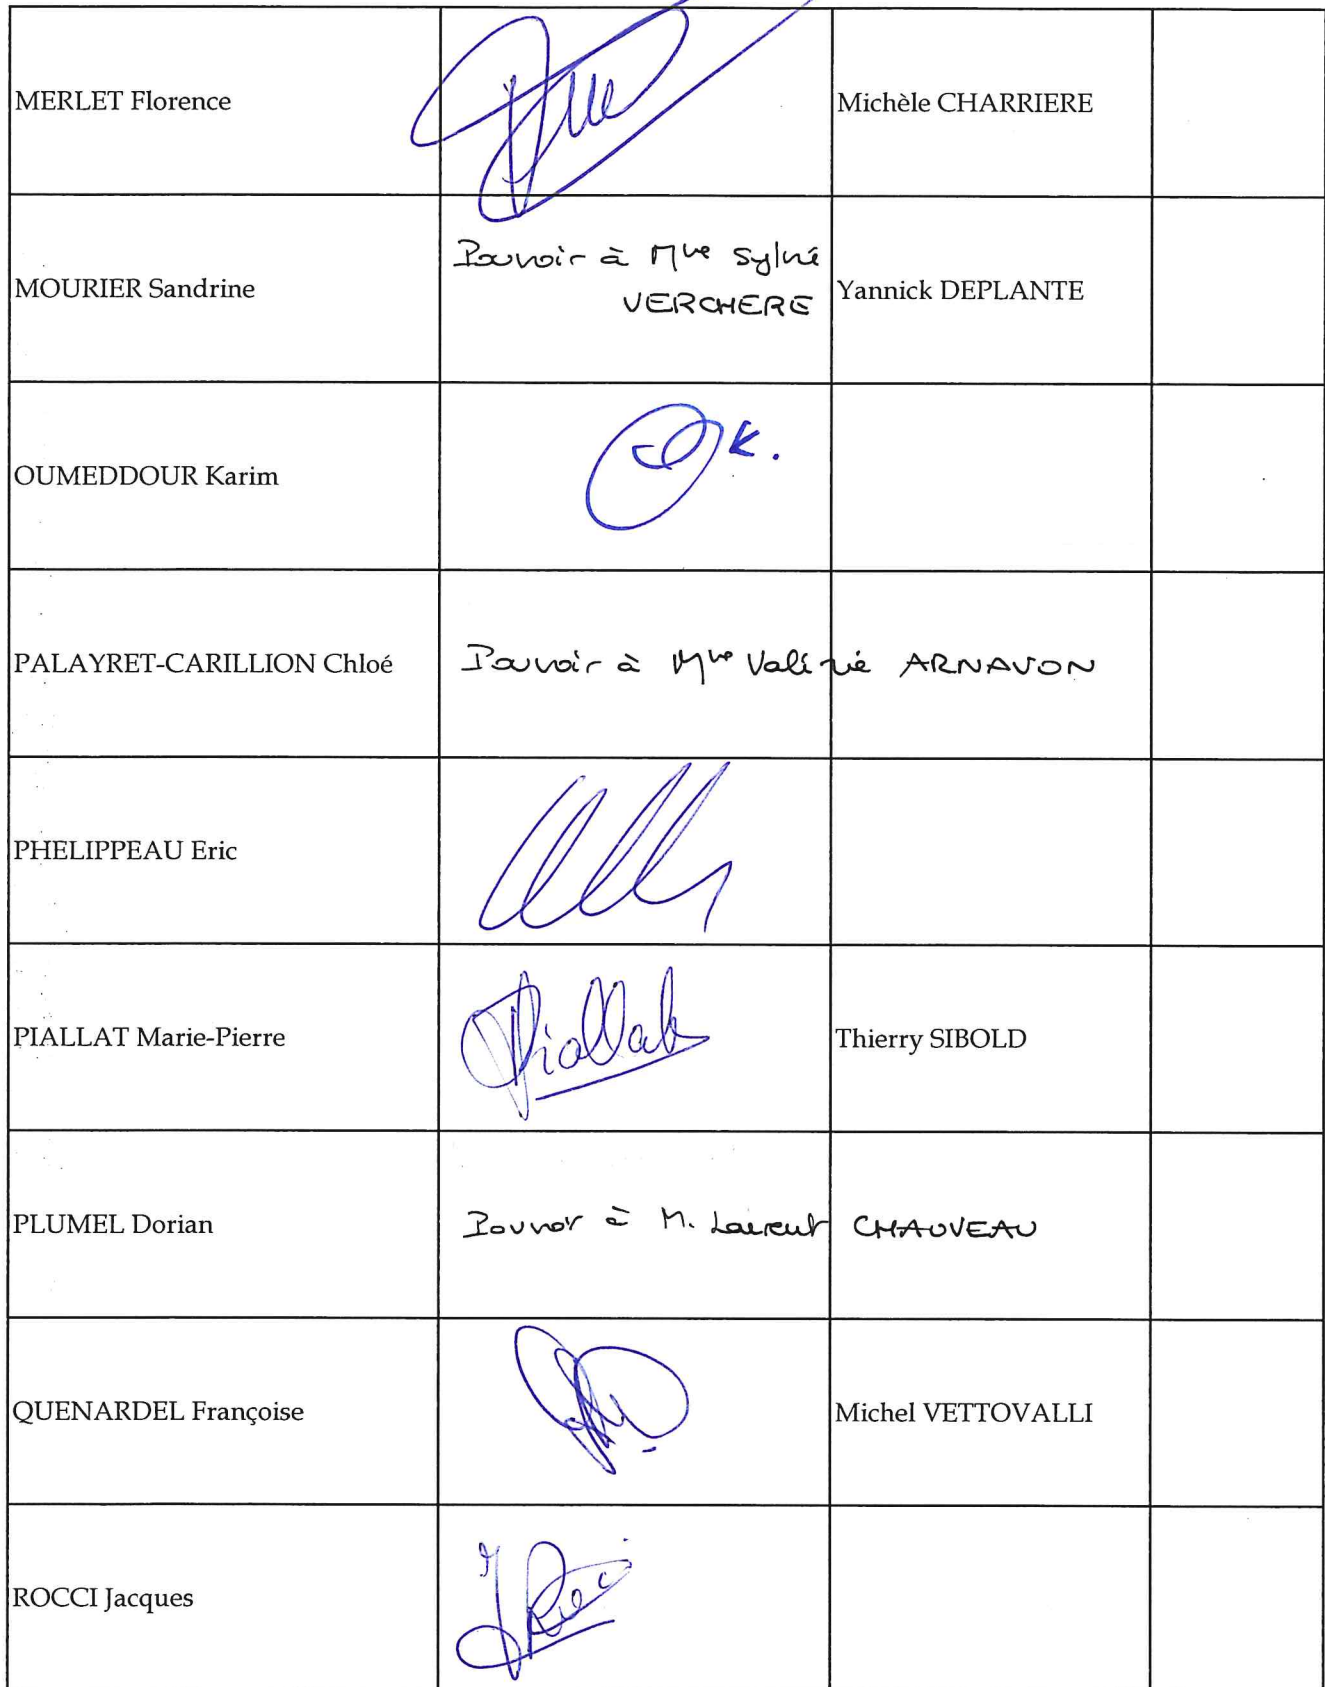 MERLET Florence
Michèle CHARRIERE
MOURIER Sandrine
Pouvoir à Mme Sylvie
VERCHERE
Yannick DEPLANTE
OUMEDDOUR Karim
K.
PALAYRET-CARILLION Chloé
Pouvoir à Mme Valérie ARNAVON
PHELIPPEAU Eric
PIALLAT Marie-Pierre
Piallat
Thierry SIBOLD
PLUMEL Dorian
Pouvoir à M. Laurent CHAUVEAU
QUENARDEL Françoise
Michel VETTOVALLI
ROCCI Jacques